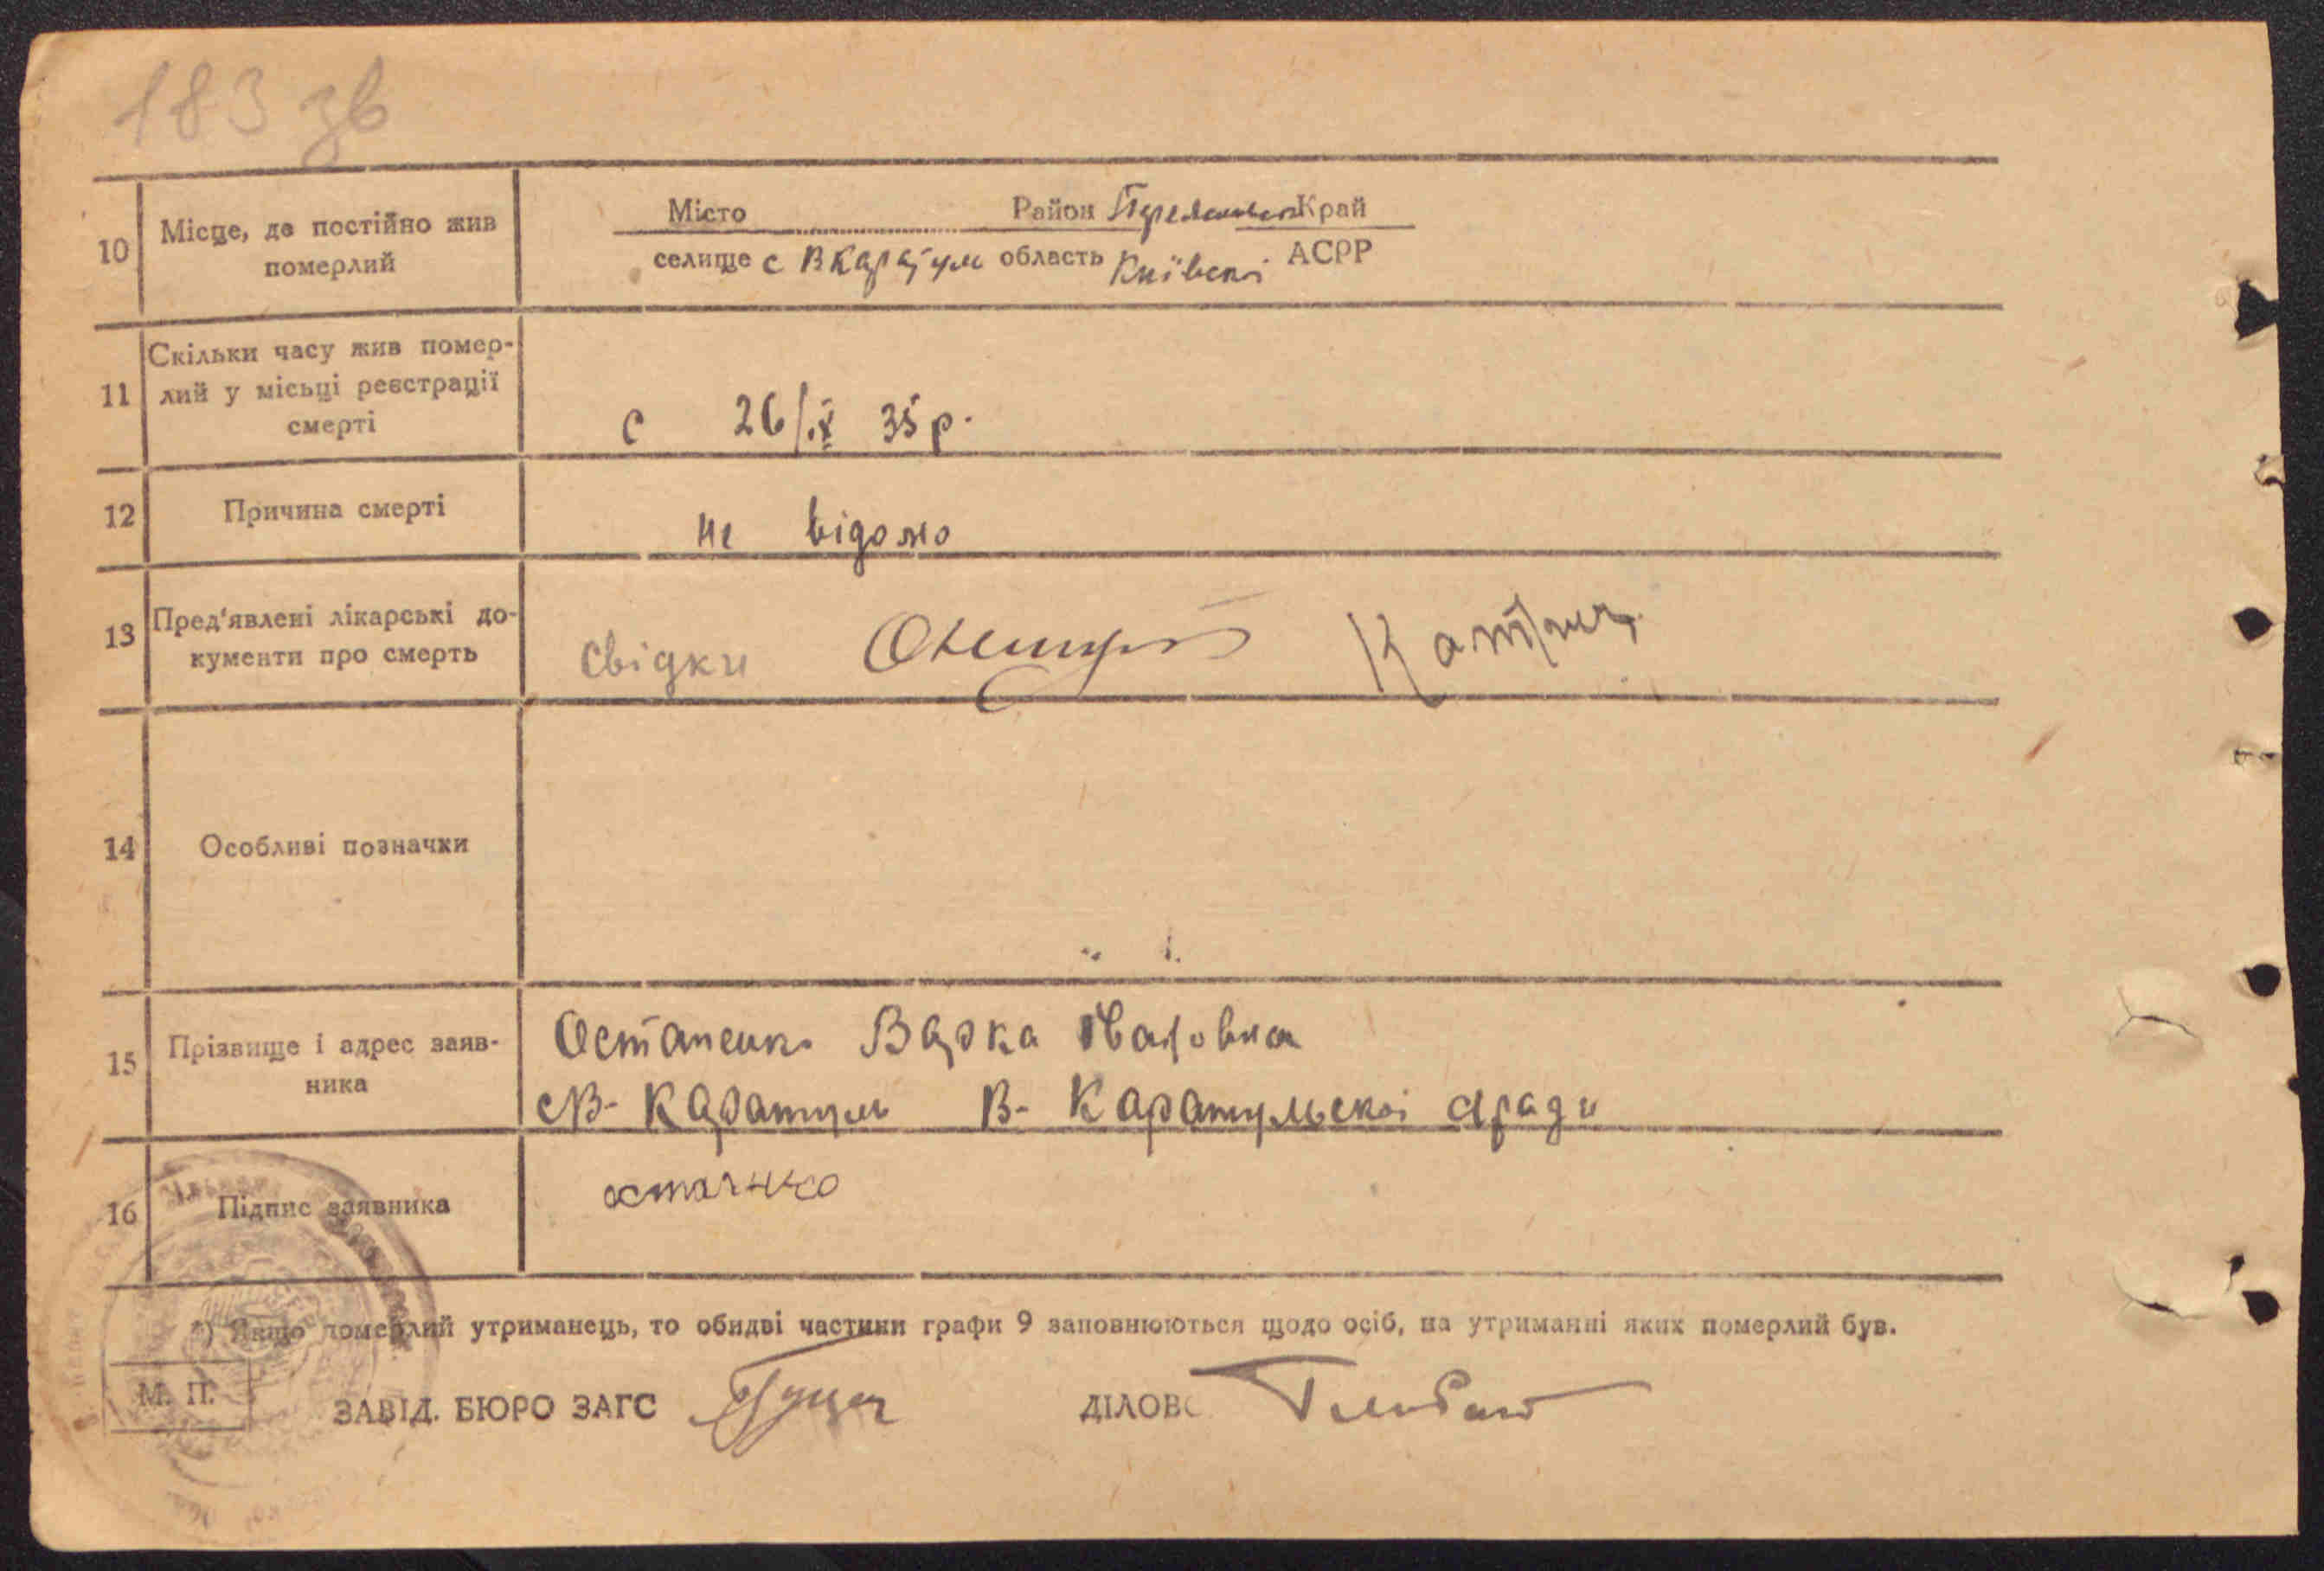 183 зв
10 Місце, де постійно жив померлий
Місто Район Край
селище с В Каратуль область Київскі АСРР
11 Скільки часу жив помер-
лий у місьці реєстрації
смерті
с 26/IX 35 р.
12 Причина смерті
не відомо
13 Пред'явлені лікарські до-
кументи про смерть
свідки
14 Особливі позначки
15 Прізвище і адрес заяв-
ника
Остапенко Варка
с В- Каратуль В- Каратульскоі с/ради
16 Підпис заявника
*) Якщо померлий утриманець, то обидві частини графи 9 заповнюються щодо осіб, на утриманні яких померлий був.
М. П.
ЗАВІД. БЮРО ЗАГС ДІЛОВО